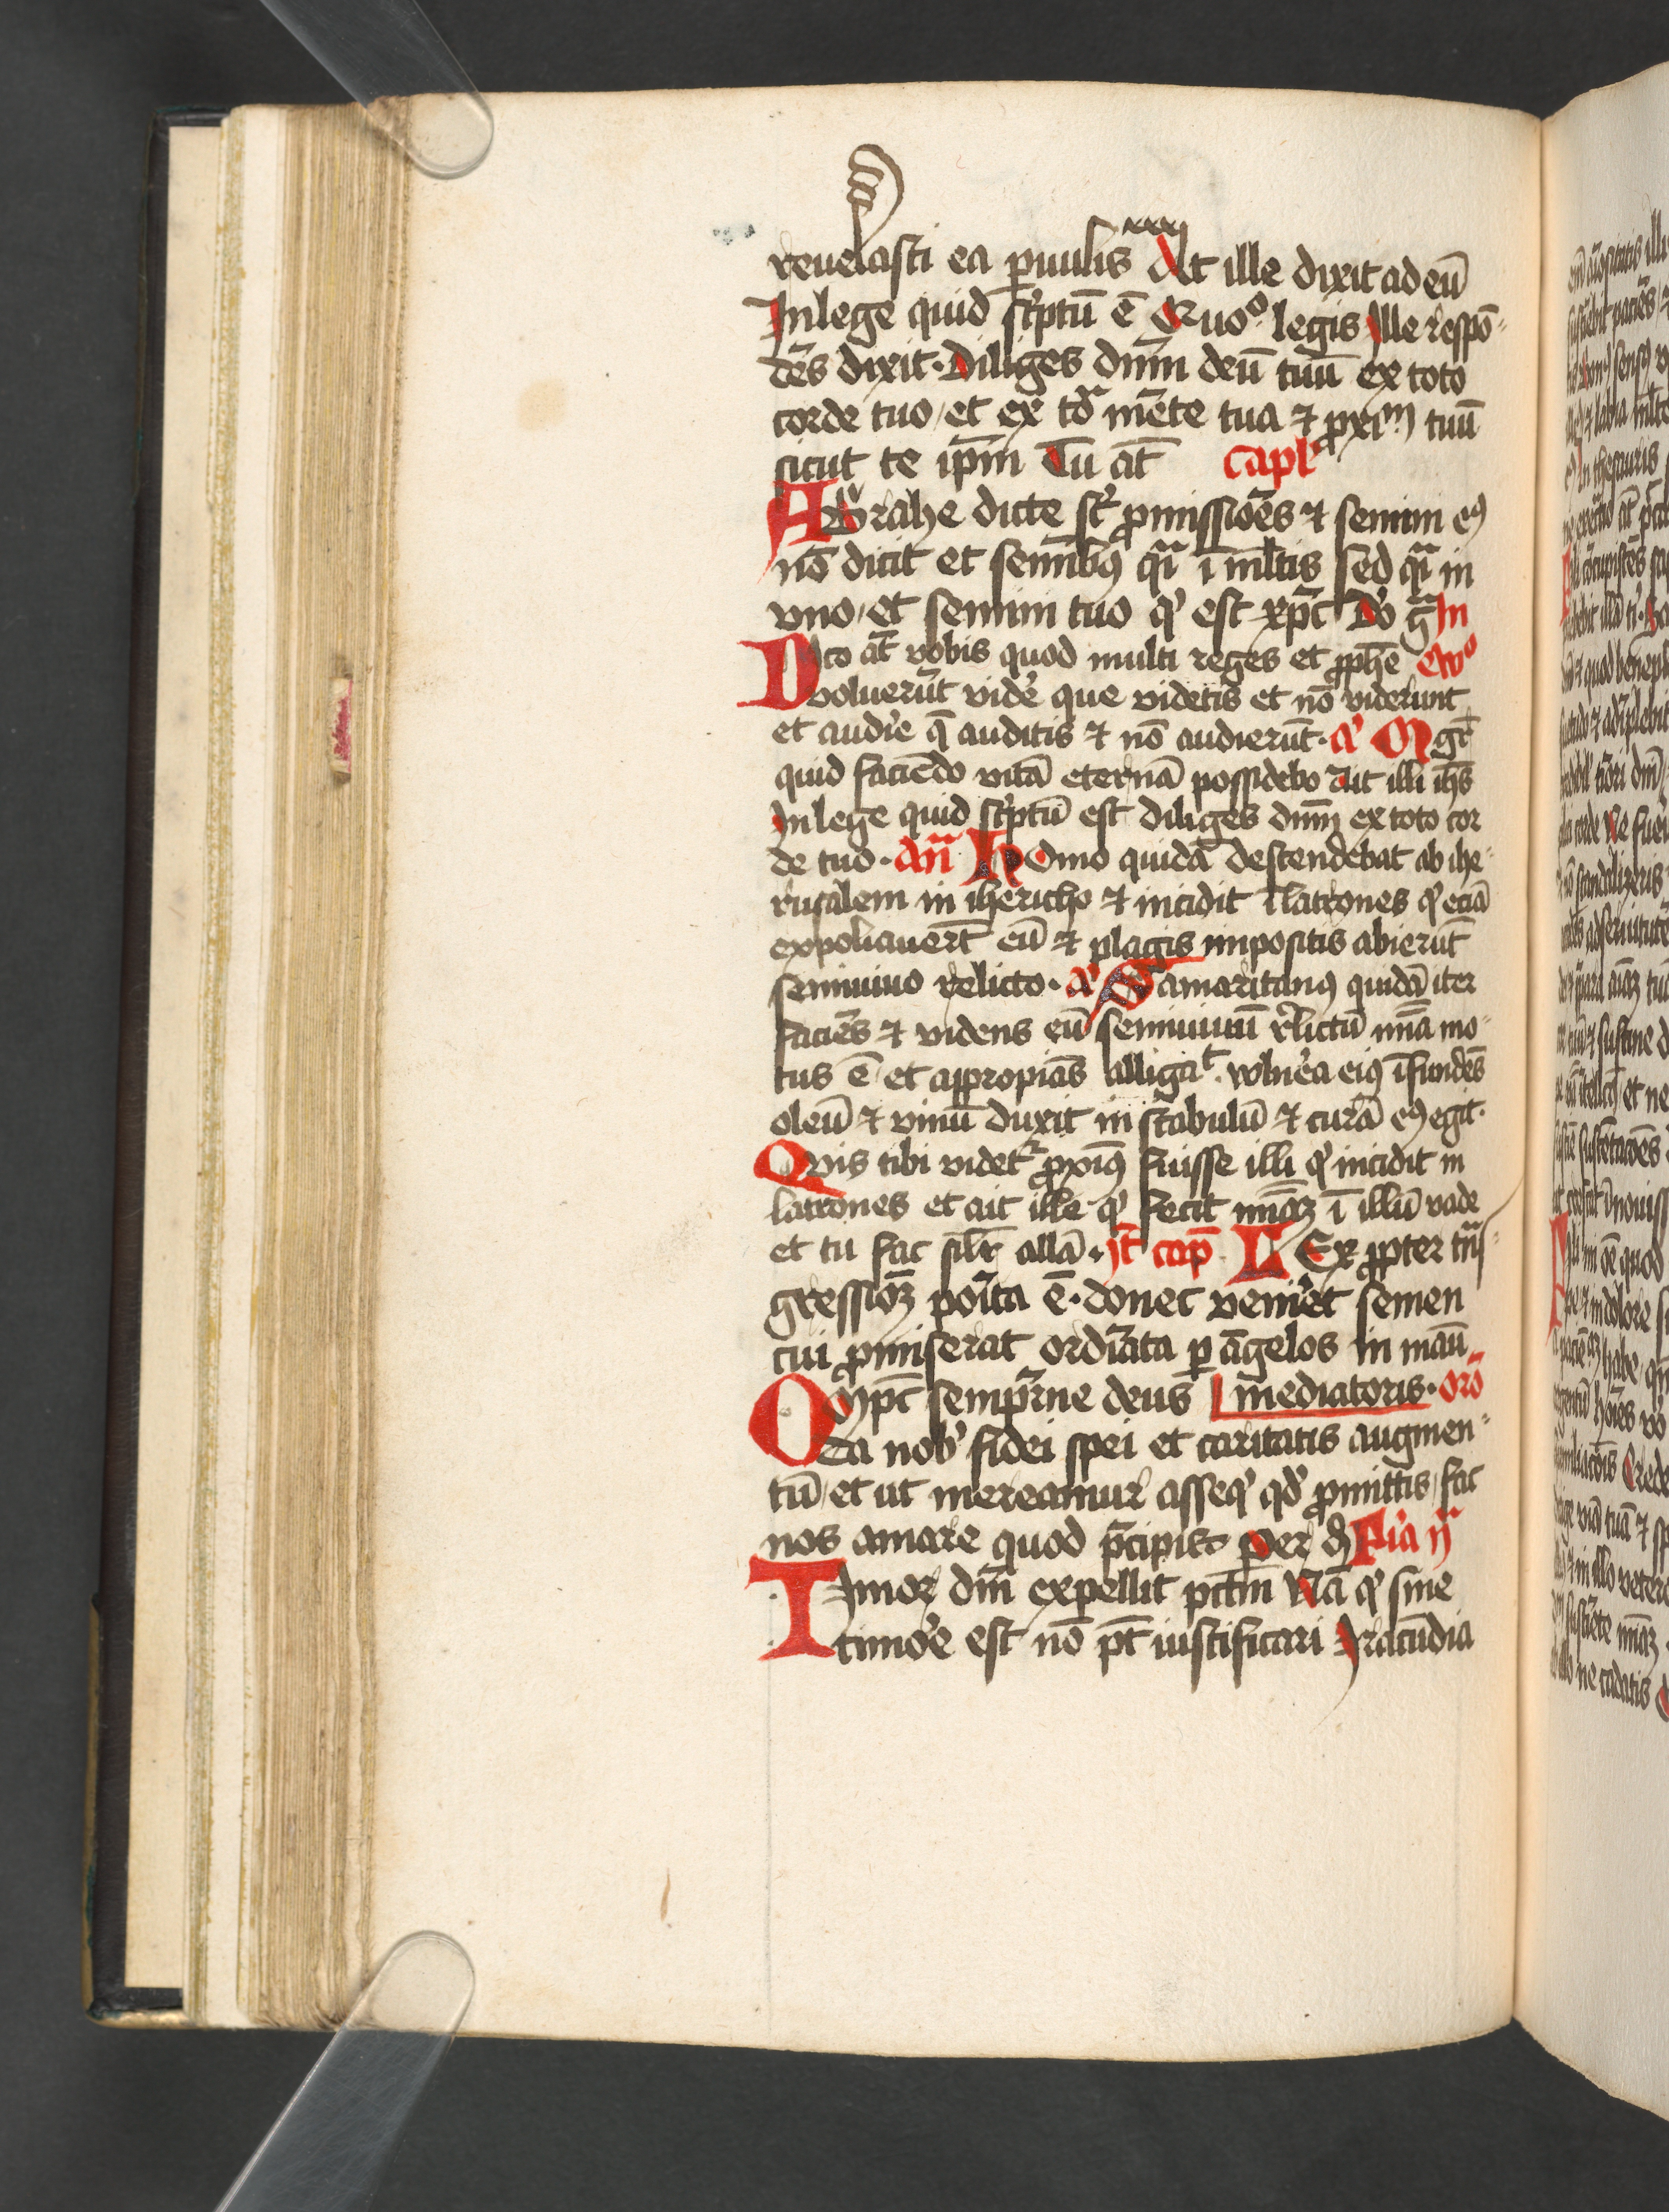 reuelasti ea ꝑuulis At ille dixit ad eū
In lege quid sc̓ptū ē Quoº legis Ille respō
dēs dixit · Diliges dn̄m deū tuū ex toto
corde tuo / et ex tōᵃ mēte tua ⁊ ꝓxiᵐ tuū
sicut te ip̄m Tu at̄ Capl
Abrahe dicte st̄ ꝓmissiōes ⁊ semini eꝰ
nō dicit et semībꝰ qᵃi ī ml̄tis sed qᵃi in
vno / et semini tuo qͥ est xp̄c Do gᵃ In
Dico at̄ vobis quod multi reges et ꝓphe ewº
voluerūt vide̓ que videtis et nō viderunt
et audi̓e q̄ auditis ⁊ nō audierūt · aͥ Mgr̄
quid faciēdo vitā eternā possidebo Ait illi ih̄s
In lege quid sc̓ptū est diliges dn̄m ex toto cor
de tuo · an̄ Homo quidā descendebat ab ihe
rusalem in ihericho ⁊ incidit ī latrones qͥ eciā
expoliauert̄ eū ⁊ plagis impositis abierūt
seminiuo relicto · aͥ Samaritanꝰ quidā iter
faciēs ⁊ videns eū seminiuū r̓lictū mīa mo
tus ē et appropiās alligaᵗ · wlnēa eiꝰ īfundēs
oleū ⁊ vinū duxit in stabulū ⁊ curā eꝰ egit ·
Qvis tibi videtᷣ ꝓxīꝰ fuisse illi qͥ incidit in
latrones et ait ille qͥ fecit mīaꝫ ī illū vade
et tu fac silr̄ allā · It̄ cap̄ LEx ꝓpter tᵃns
gressiōꝫ poi̓ta ē · donec venir̓et semen
cui ꝓmiserat ordīata ꝑ āgelos in manū
Omp̄c semp̓irne deus mediatoris · orō
da nobͥ fidei spei et caritatis augmen
tū / et ut mereamur asseqͥ qd̓ ꝓmittis / fac
nos amare quod p̄cipis · per d Fi̓a ijᵃ
Timor dn̄i expellit pctm̄ Nā qͥ sine
timo̓e est nō p̄t iustificari Iracūdia